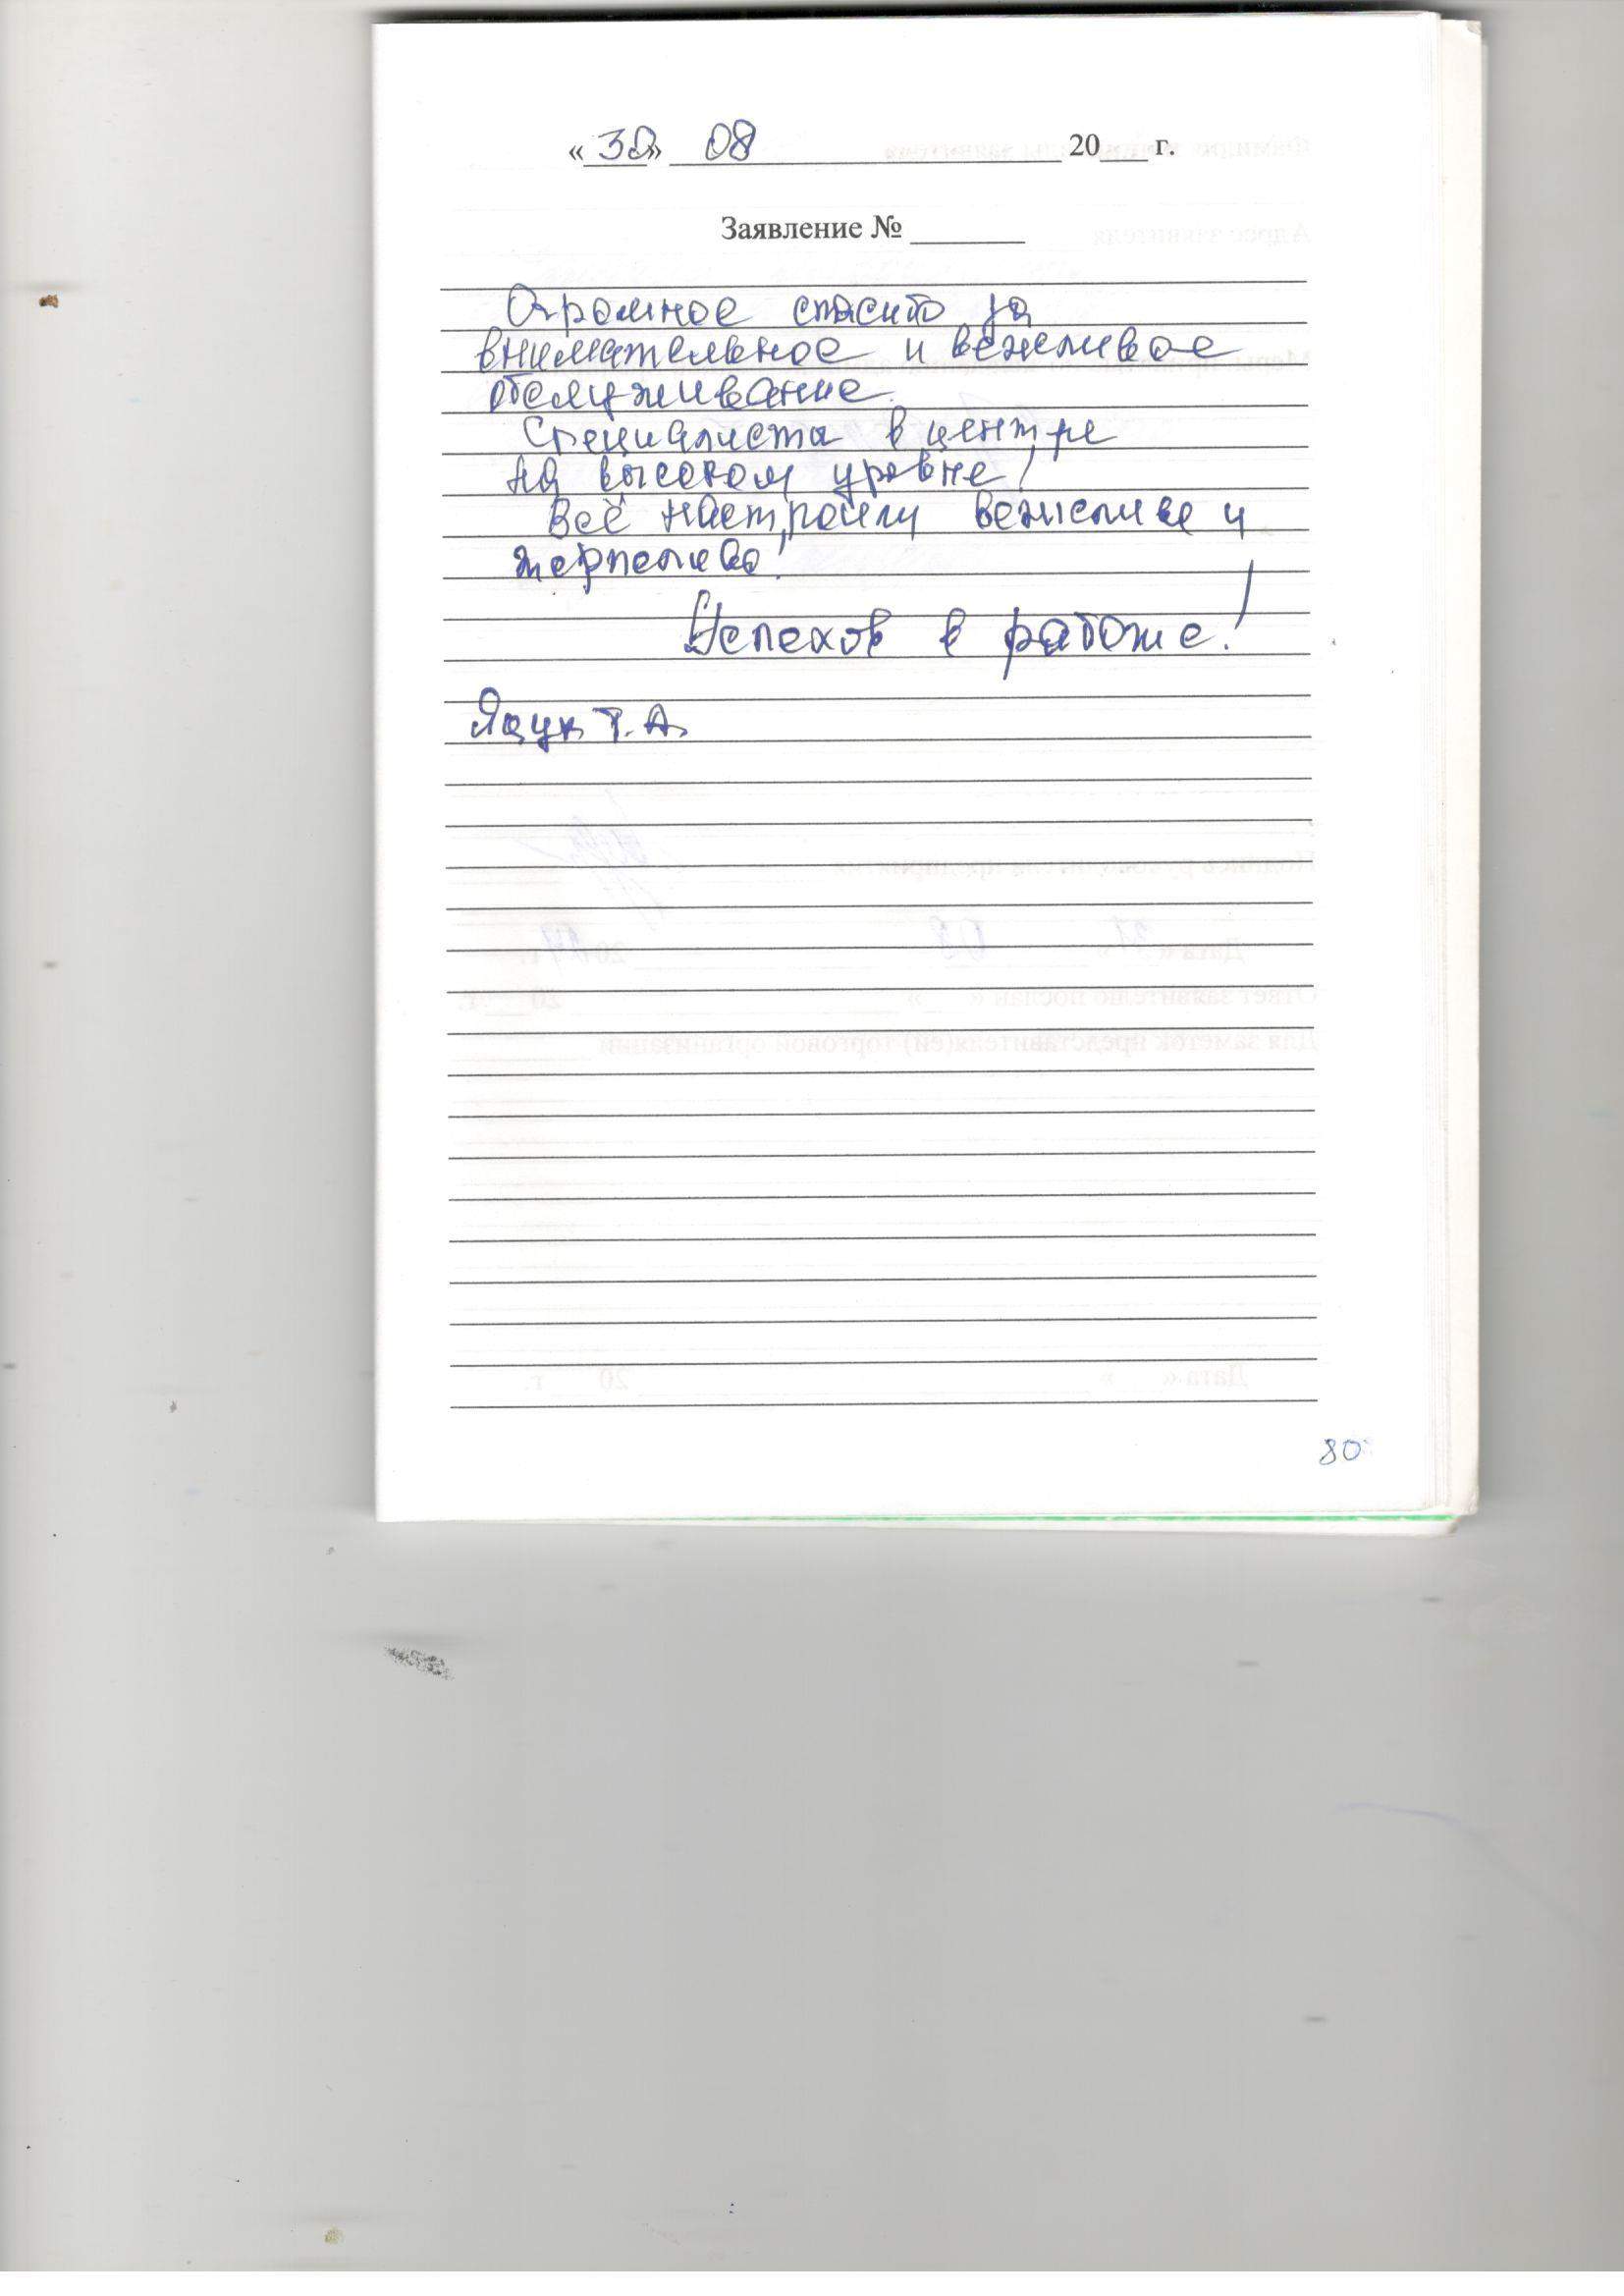 «30» 08 20___ г.
Заявление № _______
Огромное спасибо за
внимательное и вежливое
обслуживание.
Специалисты в центре
на высоком уровне!
Всё настроили вежливо и
терпеливо!
Успехов в работе!
Яцук Т. А.
80